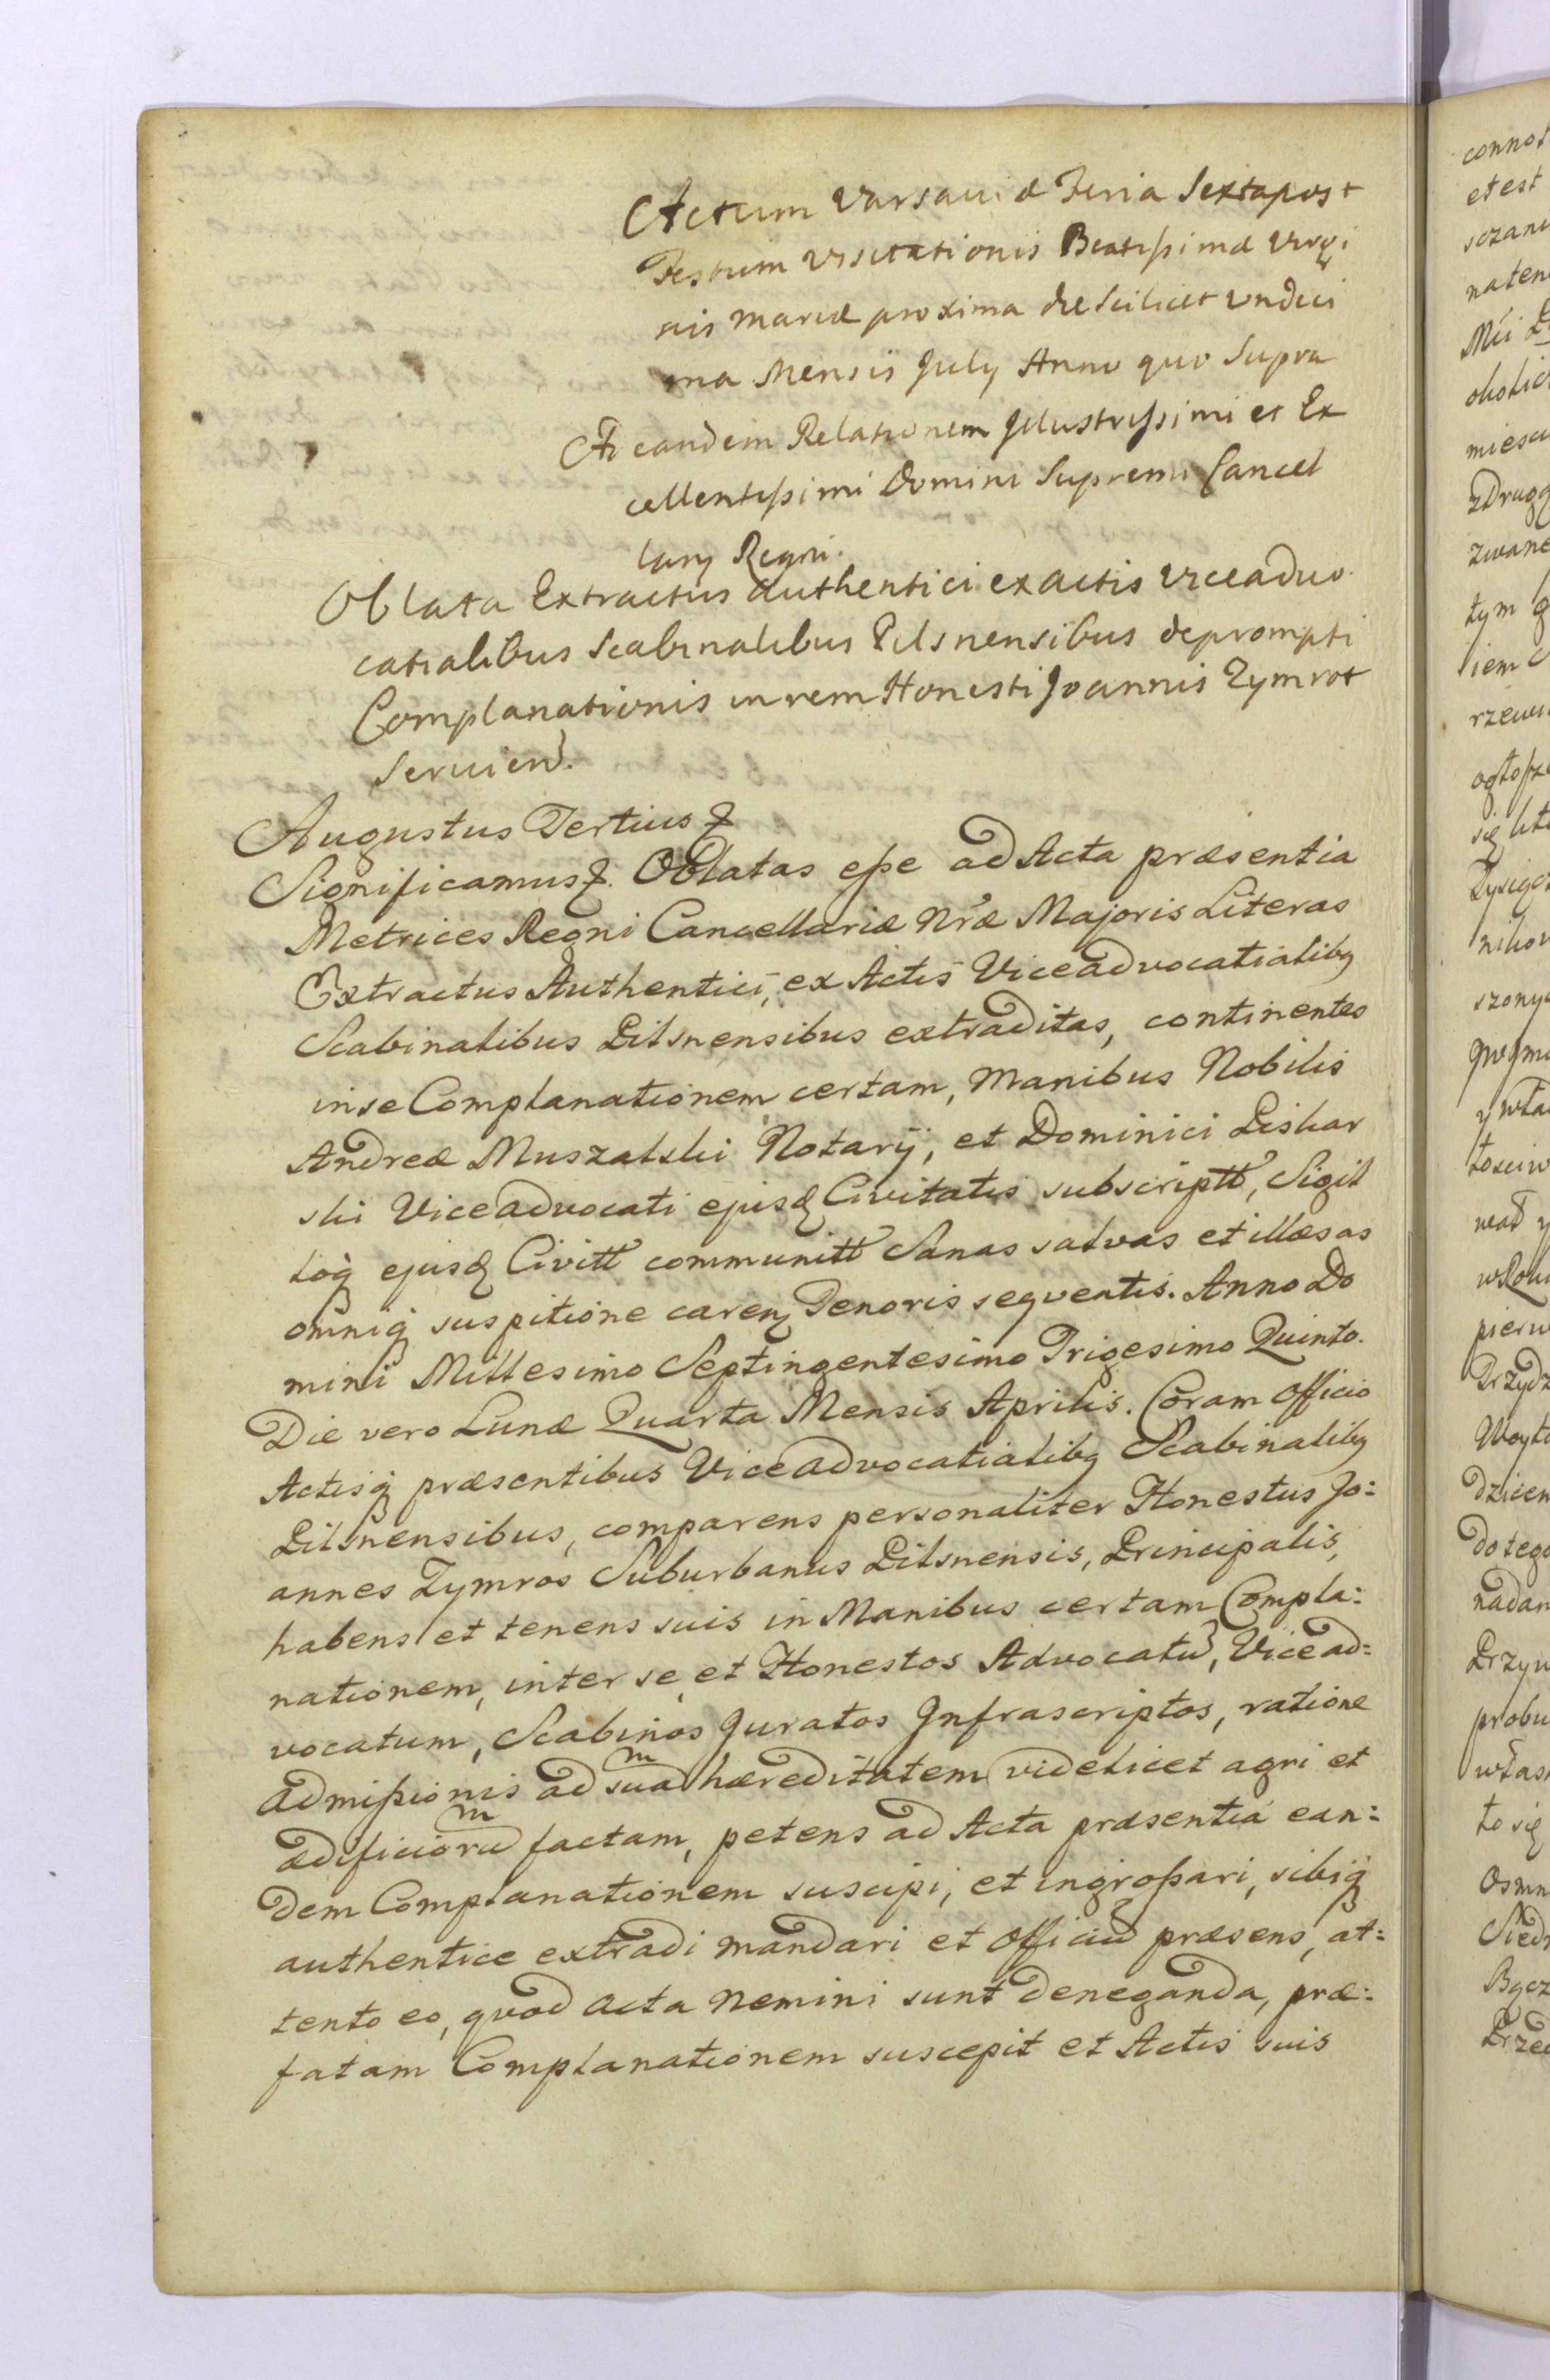 Actum Varsaviæ Feria Sexta post
Festum Visitationis Beatissimæ Virgi
nis Mariæ proxima die Scilicet Undeci
ma Mensis July Anno quo Supra
Ad eandem Relationem Illustrissimi et Ex
cellentissimi Domini Supremi Cancel
lary Regni.
Oblata Extractus Authentici ex actis Viceadvo
catialibus Scabinalibus Pilsnensibus deprompti
Complanationis in rem Honesti Joannis Zymrot
Serviend.
Augustus Tertius &
Significamus &. Oblatas esse ad Acta præsentia
Metrices Regni Cancellariæ Nræ Majoris Literas
Extractus Authentici, ex Actis Viceadvocatialibq
Scabinalibus Pilsnensibus extraditas, continentes
in se Complanationem certam, Manibus Nobilis
Andreæ Muszalski Notarij, et Dominici Piskar
ski Viceadvocati ejusq Civitatis subscriptt, Sigil
loq ejusq Civitt communitt Sanas salvas et illæsas
omniq suspitione caren Tenoris seqventis. Anno Do
mini Millesimo Septingentesimo Trigesimo Quinto.
Die vero Lunæ Quarta Mensis Aprilis. Coram Officio
Actisq præsentibus Viceadvocatialibq Scabinalibq
Pilsnensibus, comparens personaliter Honestus Jo:
annes Zymros Suburbanus Pilsnensis, Principalis,
habens et tenens suis in Manibus certam Compla:
nationem, inter se, et Honestos Advocatū, Vicead:
vocatum, Scabinos Juratos Infrascriptos, ratione
admissionis ad suam hæreditatem videlicet agri et
ædificiorum factam, petens ad Acta præsentia ean:
dem Complanationem suscipi, et ingrossari, sibiq
authentice extradi mandari et Officiū præsens, at:
tento eo, qvod Acta nemini sunt deneganda, præ:
fatam Complanationem suscepit et Actis suis
connot
et est
naten
miesc
zwane
tym
iem
rzews
się
szony
y
pierw
Przydz
Woyt
dzicen
do tego
nadan
Przyw
probu
własn
to się
Osmn
Siedm